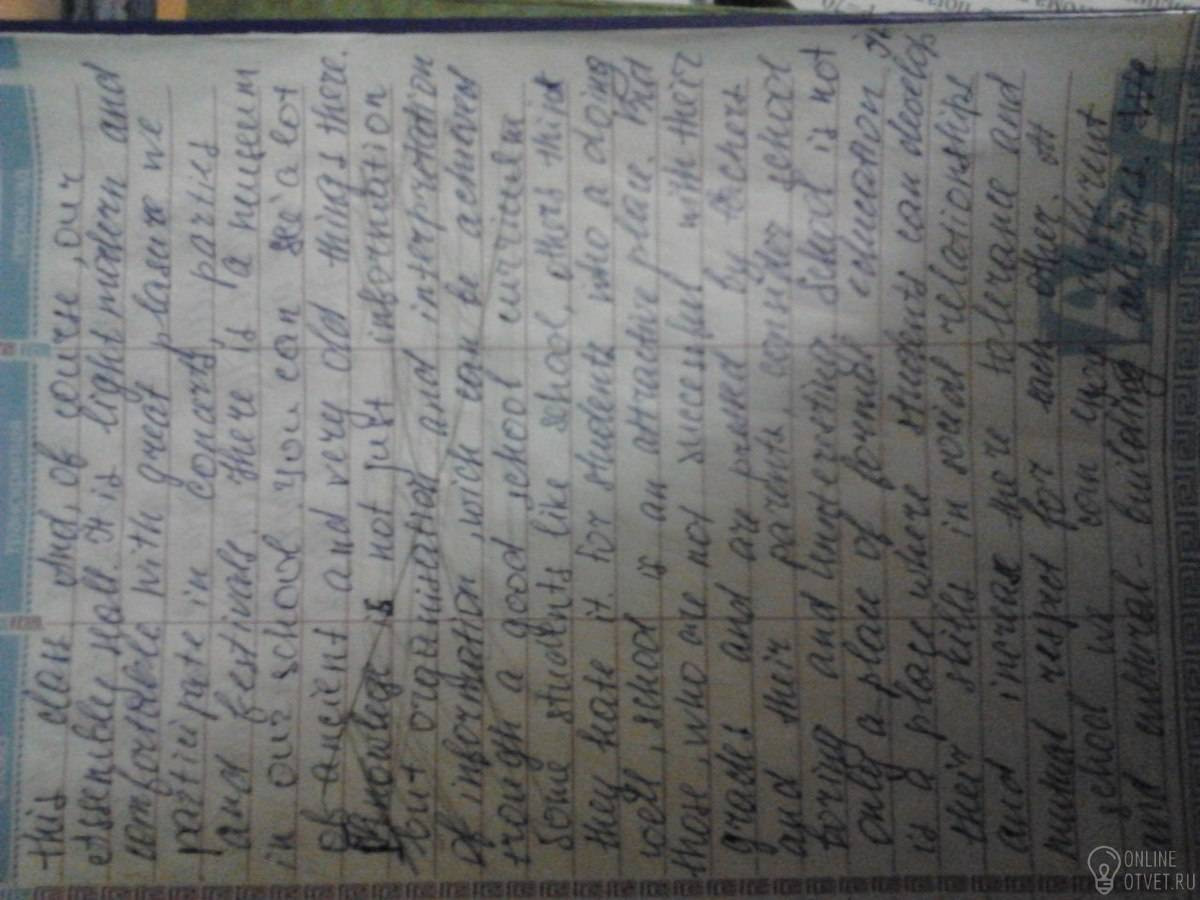 this class And, of course, our
assembly hall. It is light modern and
comfortable with great plasure we
participate in concarts, parties
and festivals. There is a museum
in our school you can see a lot
of ancient and very old things there.
knowlege is not just information
but organisation and interpretation
of information, wich can be achieved
trough a good school curriculm
Some students like school, others think
they hate it. For students who a doing
well, school is an attractive place. But
those, who are not successful with their
grades and are presed by techers
and their parents, consider school
boring and unnteresting. School is not
only a place of formal education. It
is a place where students can develop
their skills in social relationships
and increase there tolerance and
mutual respect for each other. At
school we can enjoy different
and cultural-building activities.
ONLINE
OTVET.RU